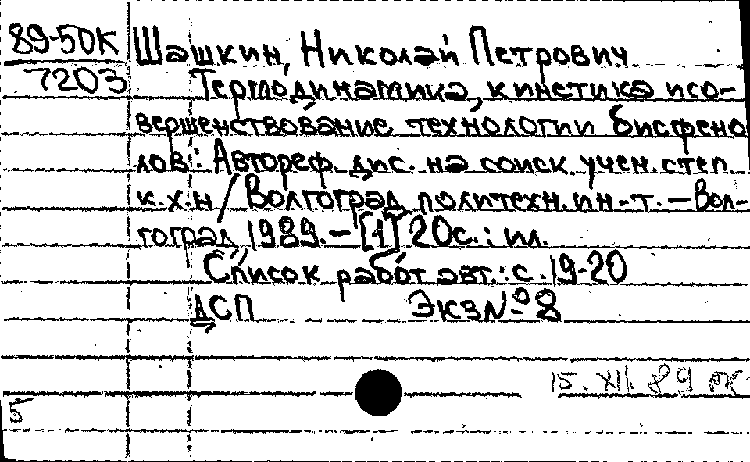 89-50К
7203
Шашкин, Николай Петрович
Термодинамика, кинетика исо-
вершенствование технологии бисфено
лов: Автореф. дис. на соиск. учен. степ.
к.х.н / Волгоград. политехн. ин-т. - Вол-
гоград, 1989. - [1] 20с.: ил.
Список работ авт.: с. 19-20
ДСП Экз № 8
15. XII. 89
5